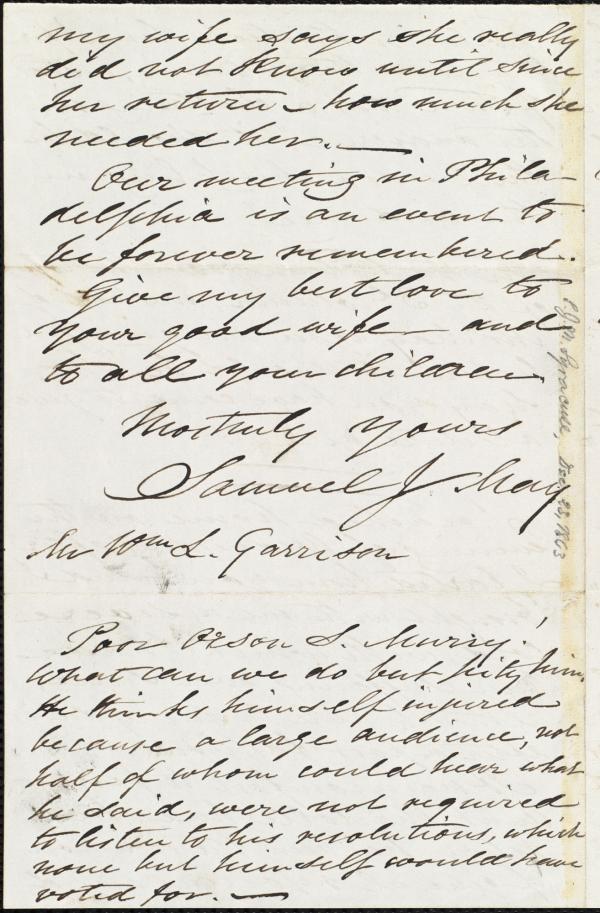 my wife says she really
did not know until since
her return – how much she
needed her. —
Our meeting in Phila-
delphia is an event to
be forever remembered.
Give my best love to
your good wife – and
to all your children.
Most truly yours
Samuel J May
Mr Wm L. Garrison
Poor Orson S. Murry!
What can we do but pity him.
He thinks himself injured
because a large audience, not
half of whom could hear what
he said, were not required
to listen to his resolutions, which
none but himself would have
voted for. —
S.J.M. Syracuse, Dec 1863